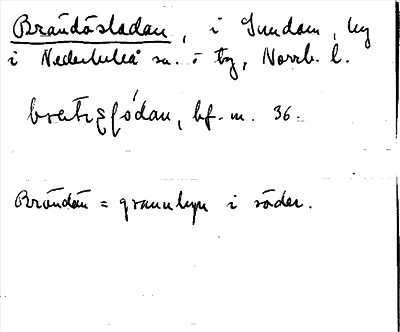 Brändösladan, i Sundom, by
i Nederluleå sn. o tg, Norrb. l.
bf. m. 36.
Brändön = grannbyn i söder.